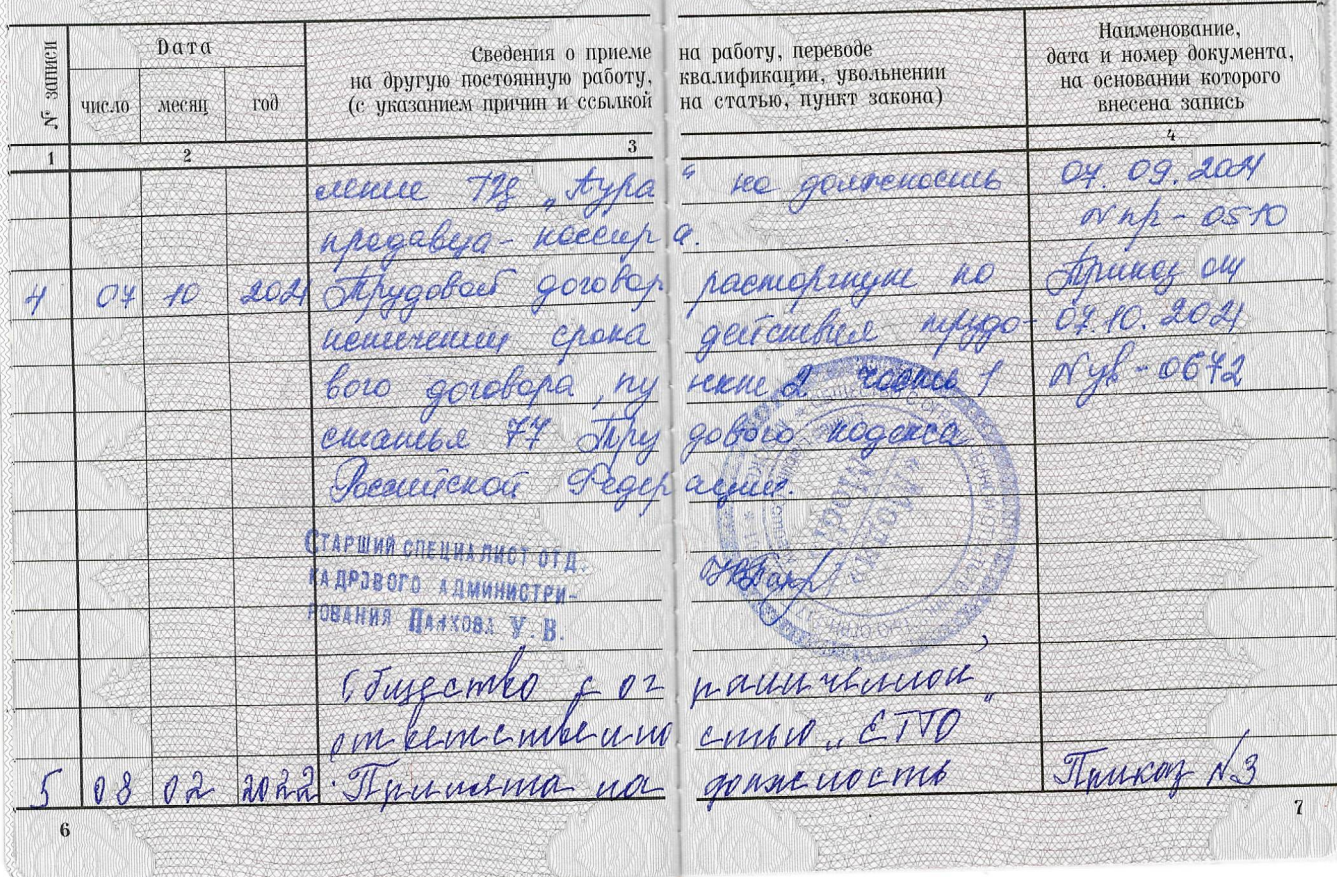 № записи
Дата
число месяц год
Сведения о приеме на работу, переводе
на другую постоянную работу, квалификации, увольнении
(с указанием причин и ссылкой на статью, пункт закона)
Наименование,
дата и номер документа,
на основании которого
внесена запись
1 2 3 4
ление ТЦ „Аура“ на должность 07.09.2021
продавца-кассира. №пр-0510
4 07 10 2021 Трудовой договор расторгнут по Приказ от
истечении срока действия трудо- 07.10.2021
вого договора, пункт 2 часть 1 №ув-0672
статья 77 Трудового кодекса
Российской Федерации.
СТАРШИЙ СПЕЦИАЛИСТ ОТД.
КАДРОВОГО АДМИНИСТРИ-
РОВАНИЯ У. В.
Общество с ограниченной
ответственностью „ “
5 08 02 2022 Принята на должность Приказ №3
6 7